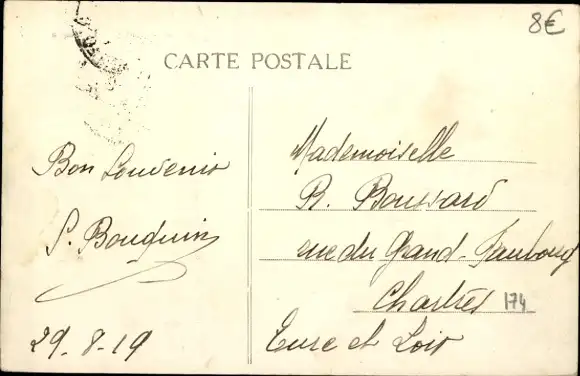 8€
CARTE POSTALE
Bon Souvenir
S. Bouquin
29-8-19
Mademoiselle
R. Boussard
rue du Grand-Faubourg
Chartres 174
Eure et Loir